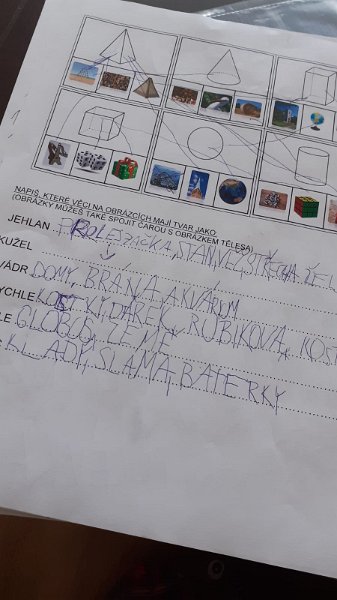 NAPIŠ, KTERÉ VĚCI NA OBRÁZCÍCH MAJÍ TVAR JAKO
(OBRÁZKY MŮŽEŠ TAKÉ SPOJIT ČAROU S OBRÁZKEM TĚLESA)
JEHLAN PROLÉZAČKA, STAN, VĚŽ, STŘECHA,
KUŽEL
VÁDR DOMY, BRÁNA, AKVÁRIUM
YCHLE KOSTKY, DÁREK, RUBIKOVA KOST
LE GLOBUS, ZEMĚ
KLÁDY, SLÁMA, BATERKY